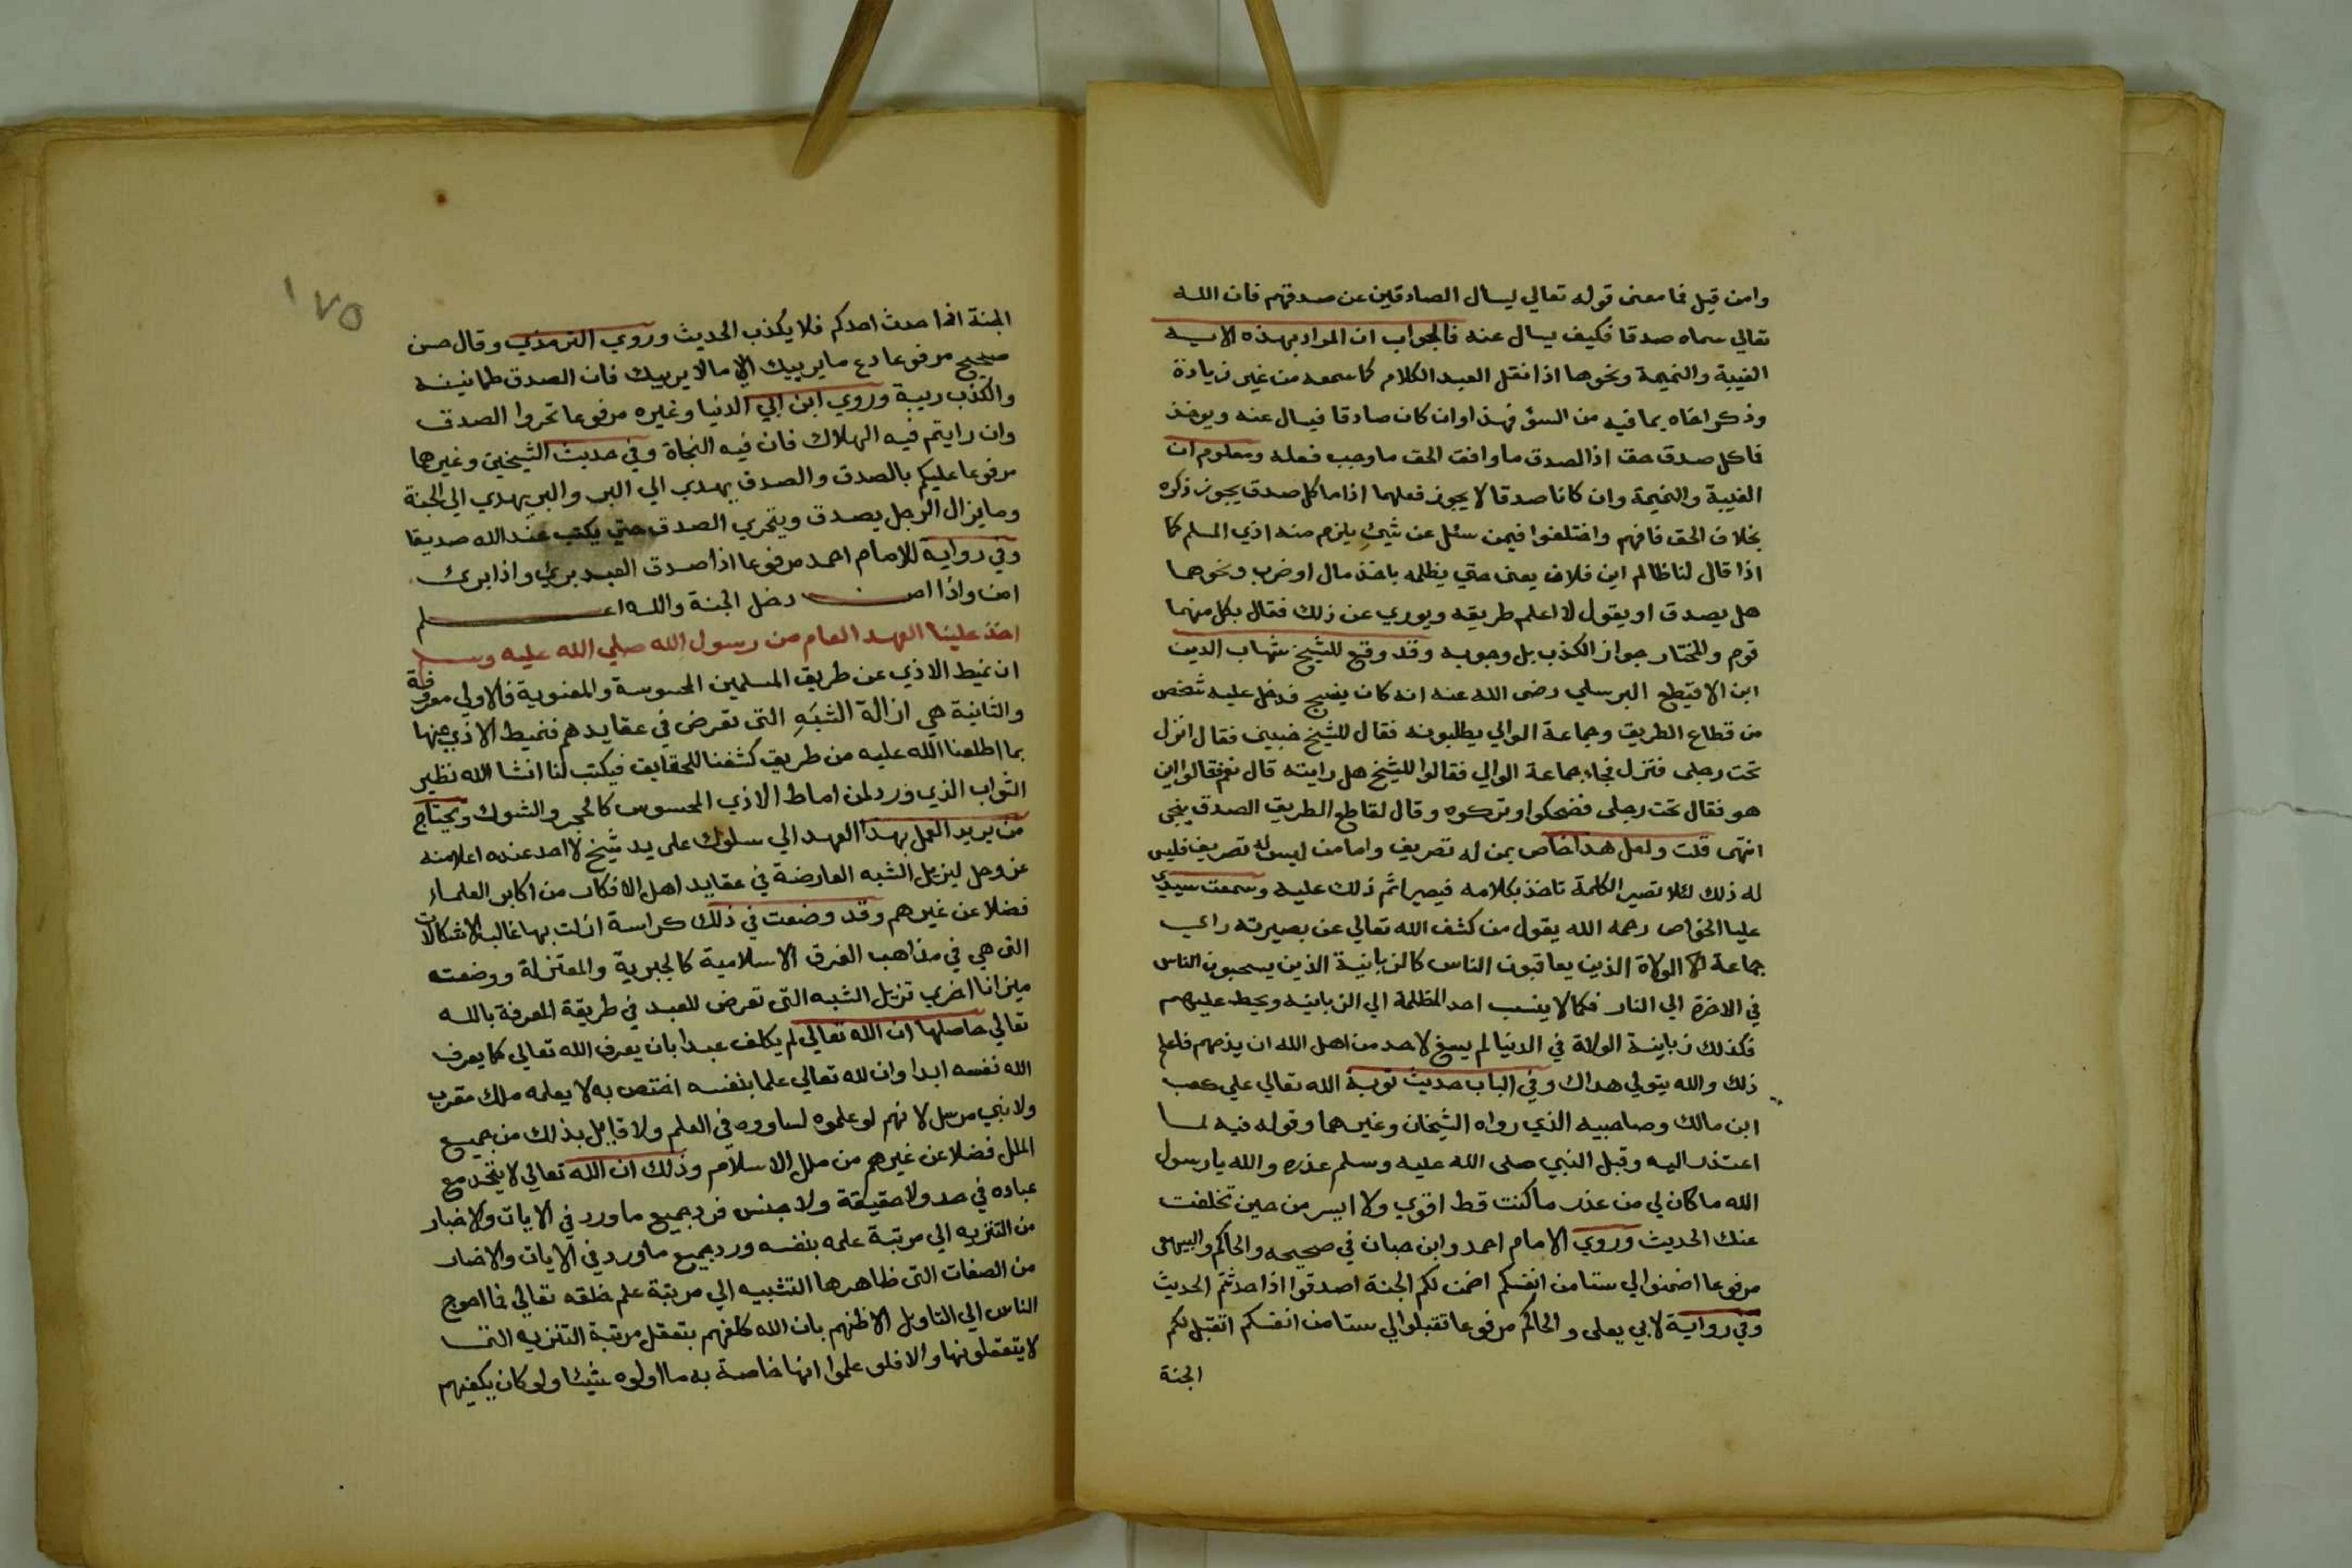 وامن قيل فما معنى قوله تعالي ليسال الصادقين عن صدقهم فان الله
تعالي سماه صدقا فكيف يسال عنه فالجواب ان المراد بهذه الايه
الغيبة والنميمة ونحوها اذا نقل العبد الكلام كما سمعه من غير زيادة
وذكر اخاه بما فيه من السؤ فهذا وان كان صادقا فيسال عنه ويوخذ
فاكل صدق حق اذ الصدق ما وافق الحق ما وجب فعله ومعلوم ان
الغيبة والنميمة وان كانا صدقا لا يجوز فعلهما اذا ما كل صدق يجوز ذكره
بخلاف الحق فافهم واختلفوا فيمن سئل عن شيء يلزم منه اذي المسلم كما
اذا قال لنا ظالم اين فلان يعنى حتي يظلمه باخذ مال او ضرب ونحوهما
هل يصدق او يقول لا اعلم طريقه ويوري عن ذلك فقال بكل منهما
قوم والمختار جواز الكذب بل وجوبه وقد وقع للشيخ شهاب الدين
ابن الاقيطع البرسلي رضى الله عنه انه كان ينسج فدخل عليه شخص
من قطاع الطريق وجماعة الوالي يطلبونه فقال للشيخ خبيني فقال انزل
تحت رجلى فنزل فجاء جماعة الوالي فقالوا للشيخ هل رايته قال نعم فقالوا اين
هو فقال تحت رجلى فضحكوا وتركوه وقال لقاطع الطريق الصدق ينجى
انتهى قلت ولعل هذا خاص بمن له تصريف واما من ليس له تصريف فليس
له ذلك لئلا تصير الكلمة تاخذ بكلامه فيصير اثم ذلك عليه وسمعت سيدي
عليا الخواص رحمه الله يقول من كشف الله تعالي عن بصيرته راي
جماعة الولاة الذين يعاقبون الناس كالزبانية الذين يسحبون الناس
في الاخرة الي النار فكما لا ينسب احد المظلمة الي الزبانيه ويحط عليهم
فكذلك زبانية الولاة في الدنيا لم يسغ لاحد من اهل الله ان يذمهم فاعلم
ذلك والله يتولي هداك وفي الباب حديث توبة الله تعالي علي كعب
ابن مالك وصاحبيه الذي رواه الشيخان وغيرهما وقوله فيه لما
اعتذر اليه وقبل النبي صلى الله عليه وسلم عذره والله يا رسول
الله ما كان لي من عذر ما كنت قط اقوي ولا ايسر من حين تخلفت
عنك الحديث وروي الامام احمد وابن حبان في صحيحه والحاكم والبيهقى
مرفوعا اضمنوا لي ستا من انفسكم اضمن لكم الجنة اصدقوا اذا حدثتم الحديث
وفي رواية لابي يعلى والحاكم مرفوعا تقبلوا لي ستا من انفسكم اتقبل لكم
الجنة
١٧٥
الجنة اذا حدث احدكم فلا يكذب الحديث وروي الترمذي وقال حسن
صحيح مرفوعا دع ما يريبك الي ما لا يريبك فان الصدق طمانينه
والكذب ريبة وروي ابن ابي الدنيا وغيره مرفوعا تحروا الصدق
وان رايتم فيه الهلاك فان فيه النجاة وفي حديث الشيخين وغيرهما
مرفوعا عليكم بالصدق والصدق يهدي الي البر والبر يهدي الي الجنة
وما يزال الرجل يصدق ويتحري الصدق حتي يكتب عند الله صديقا
وفي رواية للامام احمد مرفوعا اذا صدق العبد بري واذا بري
امن واذا امن دخل الجنة والله اعلم
اخذ علينا العهد العام من رسول الله صلي الله عليه وسلم
ان نميط الاذي عن طريق المسلمين المحسوسة والمعنوية فالاولي معروفة
والثانية هي ازالة الشبه التى تعرض في عقايدهم فنميط الاذي عنها
بما اطلعنا الله عليه من طريق كشفنا للحقايق فيكتب لنا انشا الله نظير
الثواب الذي ورد لمن اماط الاذي المحسوس كالحجر والشوك ويحتاج
من يريد العمل بهذا العهد الي سلوك على يد شيخ لا احد عنده اعلا منه
عز وجل ليزيل الشبه العارضة في عقايد اهل الافكار من اكابر العلماء
فضلا عن غيرهم وقد وضعت في ذلك كراسة ازلت بها غالب الاشكالات
التى هي في مذاهب الفرق الاسلامية كالجبرية والمعتزلة ووضعت
ميزانا اخري تزيل الشبه التى تعرض للعبد في طريقة المعرفة بالله
تعالي حاصلها ان الله تعالي لم يكلف عبدا بان يعرف الله تعالي كما يعرف
الله نفسه ابدا وان لله تعالي علما بنفسه اختص به لا يعلمه ملك مقرب
ولا نبي مرسل لانهم لو علموه لساووه في العلم ولا قايل بذلك من جميع
الملل فضلا عن غيرهم من ملل الاسلام وذلك ان الله تعالي لا يتحد مع
عباده في حد ولا حقيقة ولا جنس فرد جميع ما ورد في الايات والاخبار
من التنزيه الي مرتبة علمه بنفسه ورد جميع ما ورد في الايات والاخبار
من الصفات التى ظاهرها التشبيه الي مرتبة علم خلقه تعالي فما احوج
الناس الي التاويل الا ظنهم بان الله كلفهم بتعقل مرتبة التنزيه التى
لا يتعقلونها والا فلو علموا انها خاصة به ما اولوه شيئا ولو كان يكفيهم